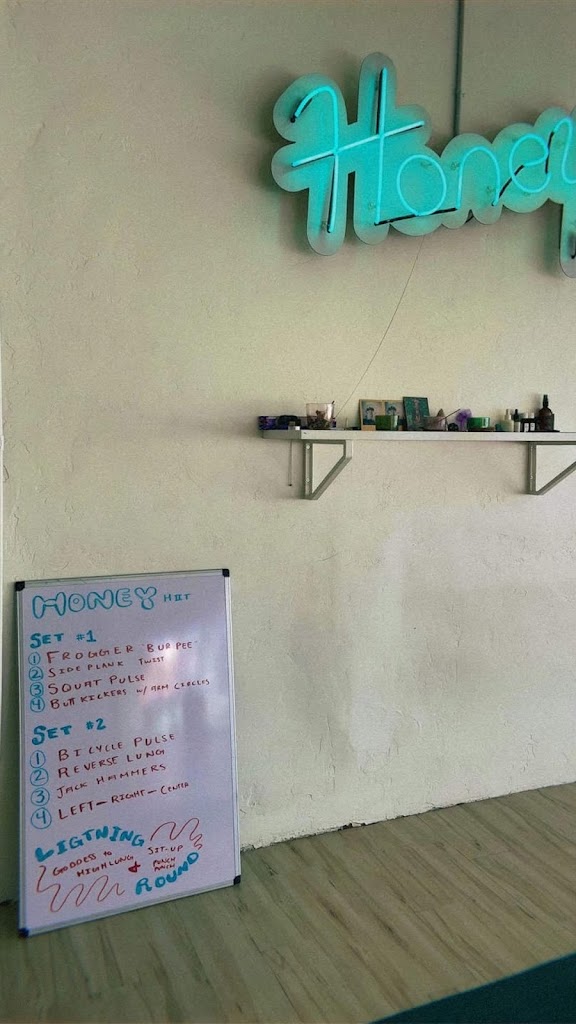 Honey
HONEY HIIT
SET #1
1 FROGGER "BURPEE"
2 SIDE PLANK TWIST
3 SQUAT PULSE
4 BUTT KICKERS W/ ARM CIRCLES
SET #2
1 BICYCLE PULSE
2 REVERSE LUNG
3 JACK HAMMERS
4 LEFT-RIGHT-CENTER
LIGTNING
GODDESS to
HIGH LUNG
+
SIT-UP
PUNCH
PUNCH
ROUND